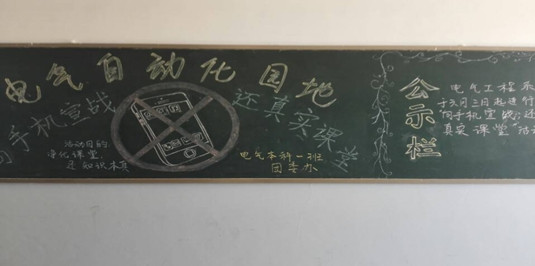 电气自动化园地
向手机宣战
还真实课堂
活动目的
净化课堂,
还知识本真
电气本科一班
团委办
公示栏
电气工程系
于六月三日起进行
向手机宣战,还
真实课堂活动